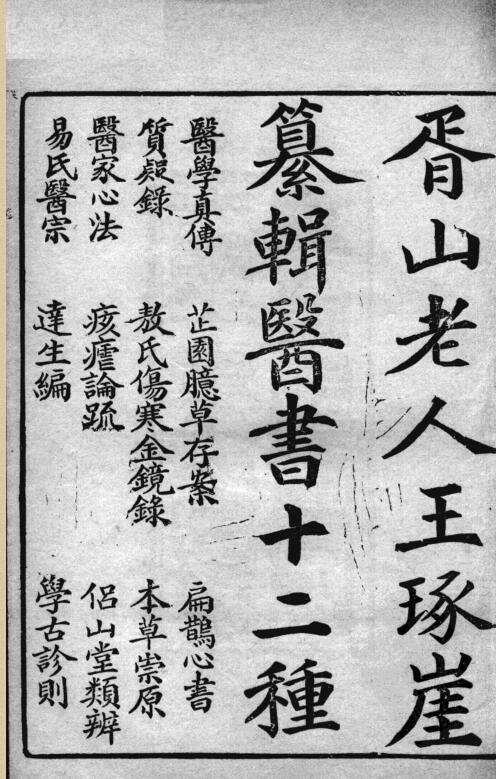 胥山老人王琢崖
纂輯醫書十二種
醫學真傳
芷園臆草存案
扁鵲心書
質疑錄
敖氏傷寒金鏡錄
本草崇原
醫家心法
痎瘧論疏
侶山堂類辨
易氏醫宗
達生編
學古診則